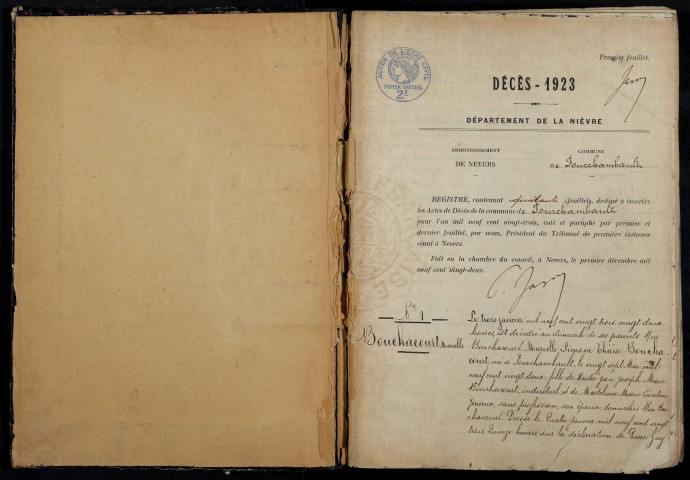 Premier feuillet.
ACTES DE L'ÉTAT CIVIL
PAPIER SPÉCIAL
2F
DÉCÈS - 1923
DÉPARTEMENT DE LA NIÈVRE
ARRONDISSEMENT
DE NEVERS
COMMUNE
DE Fourchambault
REGISTRE, contenant feuillets, destiné à inscrire
les Actes de Décès de la commune de Fourchambault
pour l'an mil neuf cent vingt-trois, coté et paraphé par premier et
dernier feuillet, par nous, Président du Tribunal de première instance
séant à Nevers.
Fait en la chambre du conseil, à Nevers, le premier décembre mil
neuf cent vingt-deux.
N° 1
Bouchacourt Mireille
Le trois janvier mil neuf cent vingt trois, vingt deux
heures, est décédée au domicile de ses parents Rue
Bouchacourt, Simone Thérèse Boucha
court née à Fourchambault, le vingt sept Mai mil
neuf cent vingt deux, fille de André Jean Joseph Marie
Bouchacourt, industriel, et de Madeleine Marie
sans profession, son épouse, domiciliés Rue Bou
chacourt. Dressé le Quatre janvier mil neuf cent vingt
trois Quinze heures sur la déclaration de Pierre Guy